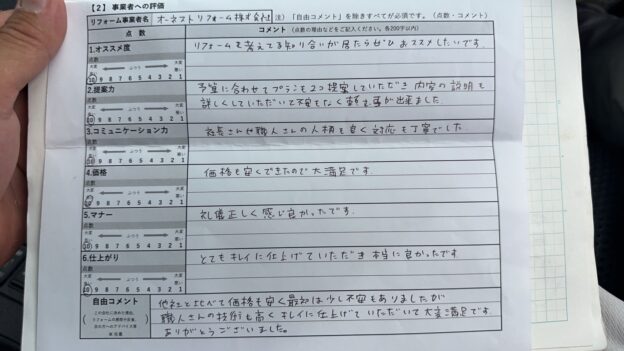 【2】 事業者への評価
リフォーム事業者名 オーネストリフォーム株式会社 注）「自由コメント」を除きすべてが必須です。（点数・コメント）
点 数 コメント（点数の理由などをご記入ください。各200字以内）
1.オススメ度 リフォームを考えてる知り合いが居たらぜひおススメしたいです。
点数
大変良い ふつう 大変悪い
10 9 8 7 6 5 4 3 2 1
2.提案力 予算に合わせてプランも2コ提案していただき 内容の説明も
点数 詳しくしていただいて不安もなく頼む事が出来ました。
大変良い ふつう 大変悪い
10 9 8 7 6 5 4 3 2 1
3.コミュニケーション力 社長さんや職人さんの人柄も良く対応も丁寧でした。
点数
大変良い ふつう 大変悪い
10 9 8 7 6 5 4 3 2 1
4.価格 価格も安くできたので大満足です。
点数
大変良い ふつう 大変悪い
10 9 8 7 6 5 4 3 2 1
5.マナー 礼儀正しく感じ良かったです。
点数
大変良い ふつう 大変悪い
10 9 8 7 6 5 4 3 2 1
6.仕上がり とてもキレイに仕上げていただき 本当に良かったです
点数
大変良い ふつう 大変悪い
10 9 8 7 6 5 4 3 2 1
自由コメント 他社と比べて価格も安く最初は少し不安もありましたが
職人さんの技術も高くキレイに仕上げていただいて大変満足です。
ありがとうございました。